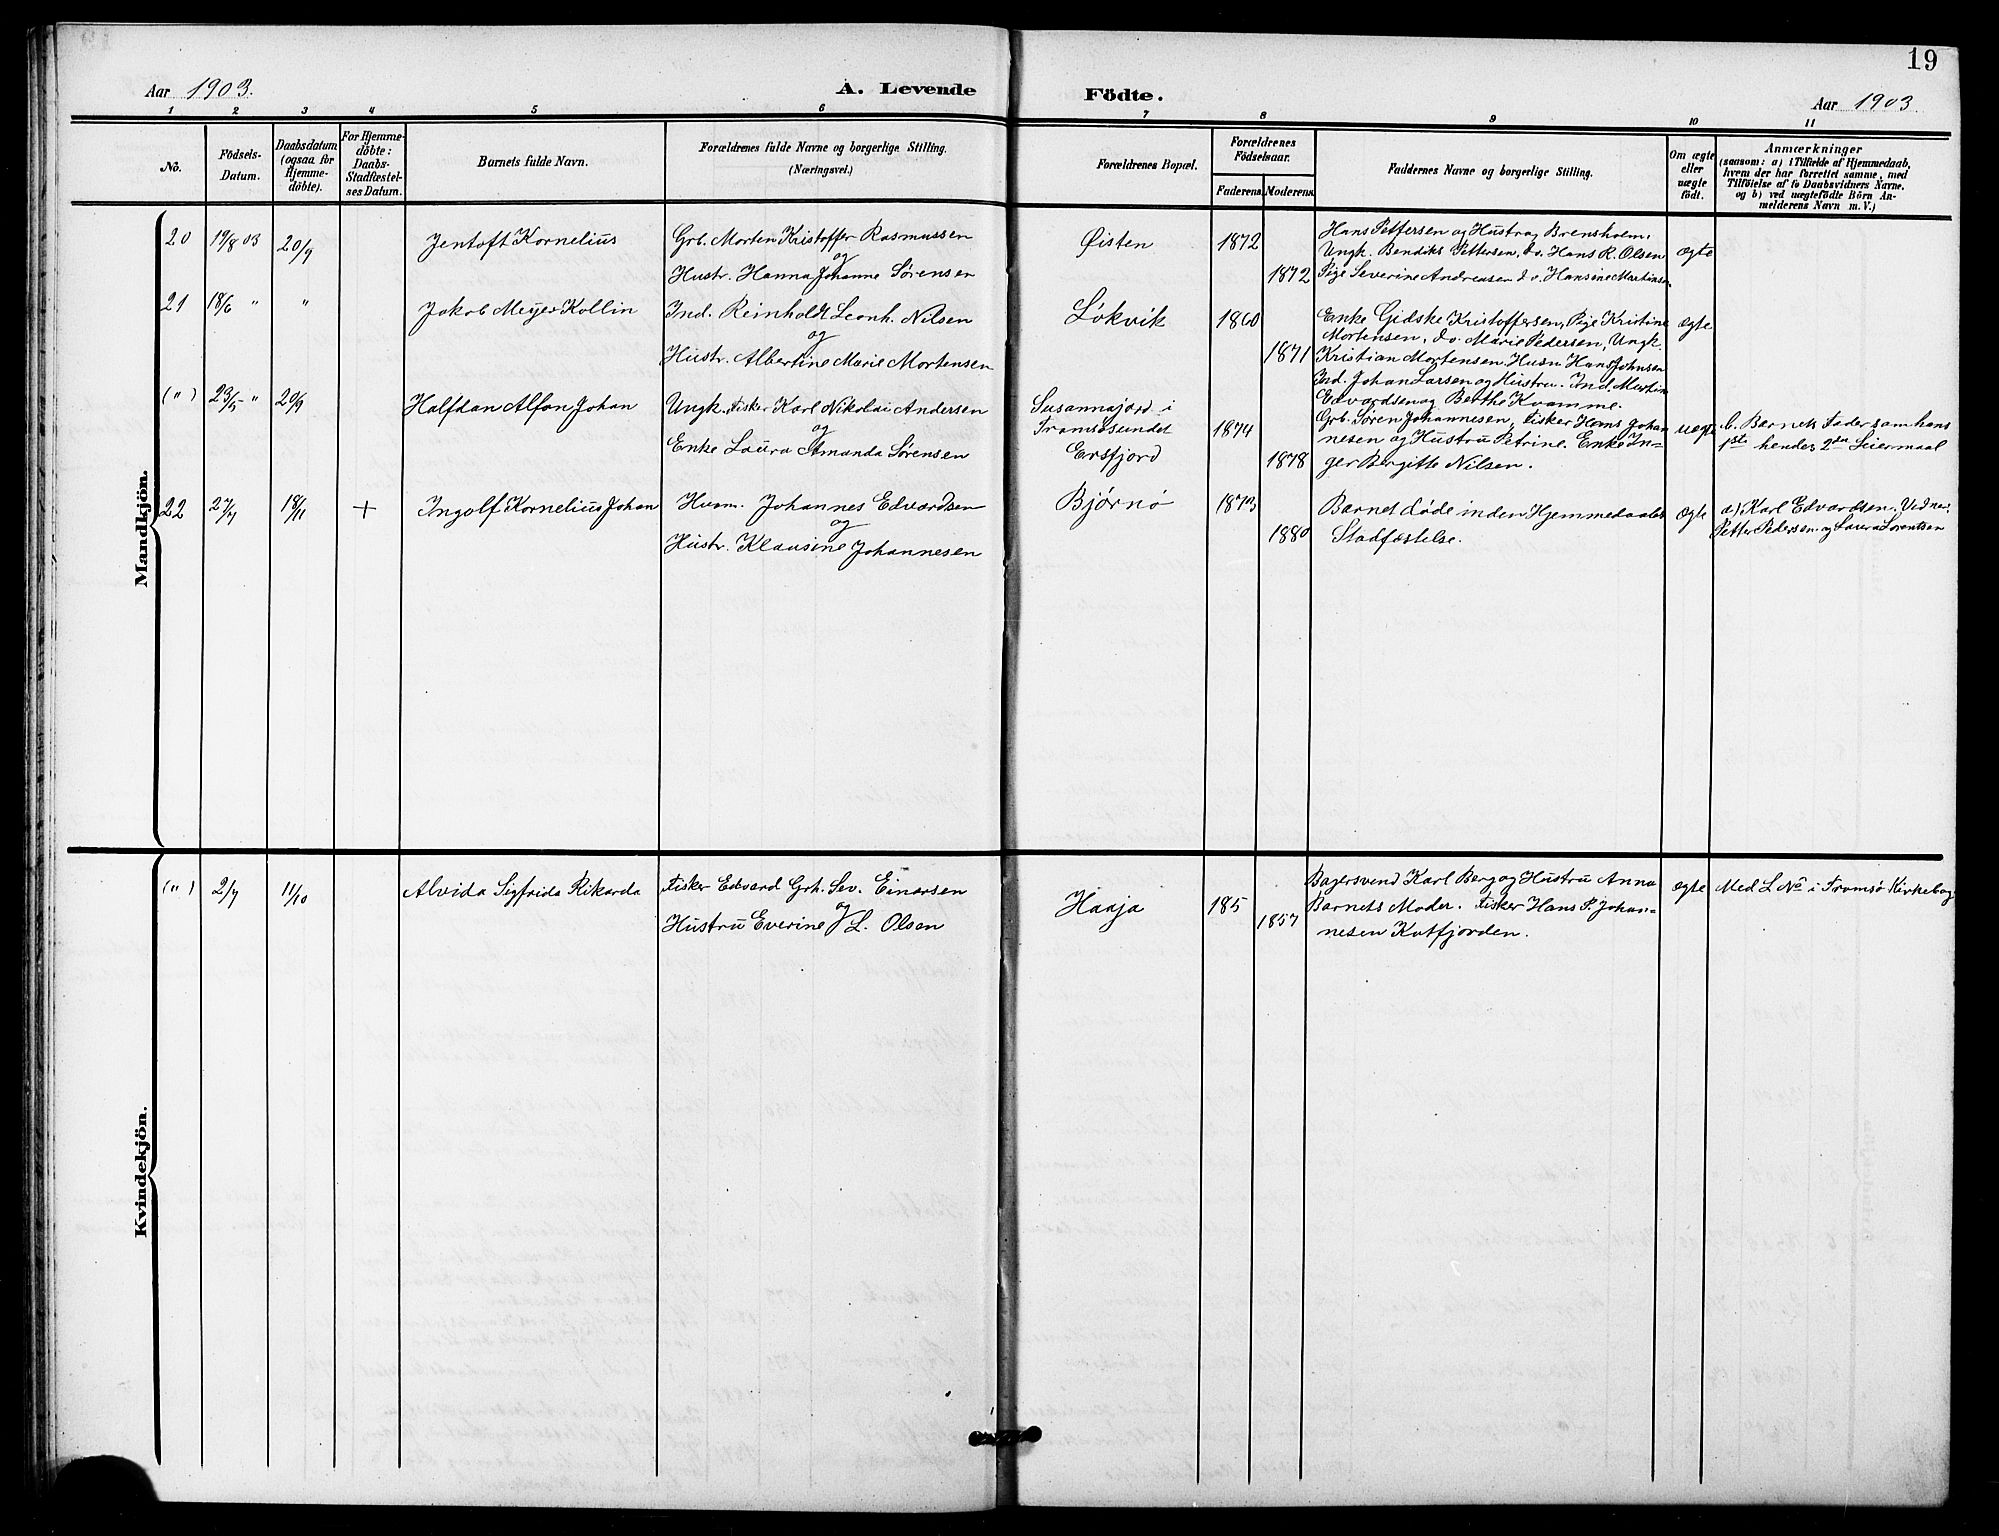 19
Aar 1903.
A. Levende
Födte.
Aar 1903.
1 2 3 4 5 6 7 8 9 10 11
No.
Födsels-
Datum.
Daabsdatum
(ogsaa for
Hjemme-
döbte).
For Hjemme-
döbte:
Daabs-
Stadfæstel-
ses Datum.
Barnets fulde Navn.
Forældrenes fulde Navne og borgerlige Stilling.
(Næringsvei.)
Forældrenes Bopæl.
Forældrenes
Födselsaar.
Faderens.
Moderens.
Faddernes Navne og borgerlige Stilling.
Om ægte
eller
uægte
födt.
Anmærkninger
(saasom: a) i Tilfælde af Hjemmedaab,
hvem der har forrettet samme, med
Tilföielse af to Daabsvidners Navne.
og b) ved uægtefödte Börn An-
melderens Navn m. V.)
Mandkjön.
20 19/8 03 20/9 Jentoft Kornelius
Grb. Morten Kristoffer Rasmussen
og
Hustr. Hanna Johanne Sørensen
Øisten 1872
1872
Hans Pettersen og Hustru Brensholm,
Ungk. Bendiks Pettersen, do. Hans R. Olsen
Pige Severine Andreasen do. Hansine Martinsen
ægte
21 18/6 " "
Jakob Meyer Kollin
Ind. Reinholdt Leonh. Nilsen
og
Hustr. Albertine Marie Mortensen
Løkvik 1860
1871
Enke Gidske Kristoffersen, Pige Kristine
Mortensen, do. Marie Pedersen, Ungk.
Kristian Mortensen Husm Hans Johnsen
Ind. Johan Larsen og Hustru. Ind. Martin
Edvardsen og Berthe Kvamme.
ægte
(") 23/5 " 20/9
Halfdan Alfon Johan
Ungk. Fisker Karl Nikolai Andersen
og
Enke Laura Amanda Sørensen
Susannajord i
Tromsøsundet
Ersfjord
1874
1878
Grb. Søren Johannesen, Fisker Hans Johan
nesen og Hustru Petrine. Enke In-
ger Bergitte Nilsen.
uægte
b. Barnets Fader sam hans
1ste hendes 2den Leiermaal
22 27/7 18/11 +
Ingolf Kornelius Johan
Husm. Johannes Edvardsen
og
Hustr. Klausine Johannesen
Bjørnø 1873
1880
Barnet døde inden Hjemmedaabs
Stadfæstelse.
ægte
a) Karl Edvardsen. Vidner,
Petter Pedersen og Laura Sørentsen
Kvindekjön.
(") 2/7 11/10
Alvida Sigfrida Rikarda
Fisker Edvard Grh. Sev. Einarsen
og
Hustru Everine L. Olsen
Haaja 185
1857
Bagersvend Karl Berg og Hustru Anna
Barnets Moder. Fisker Hans P. Johan-
nesen Katfjorden.
ægte
Med L No i Tromsö Kirkebog